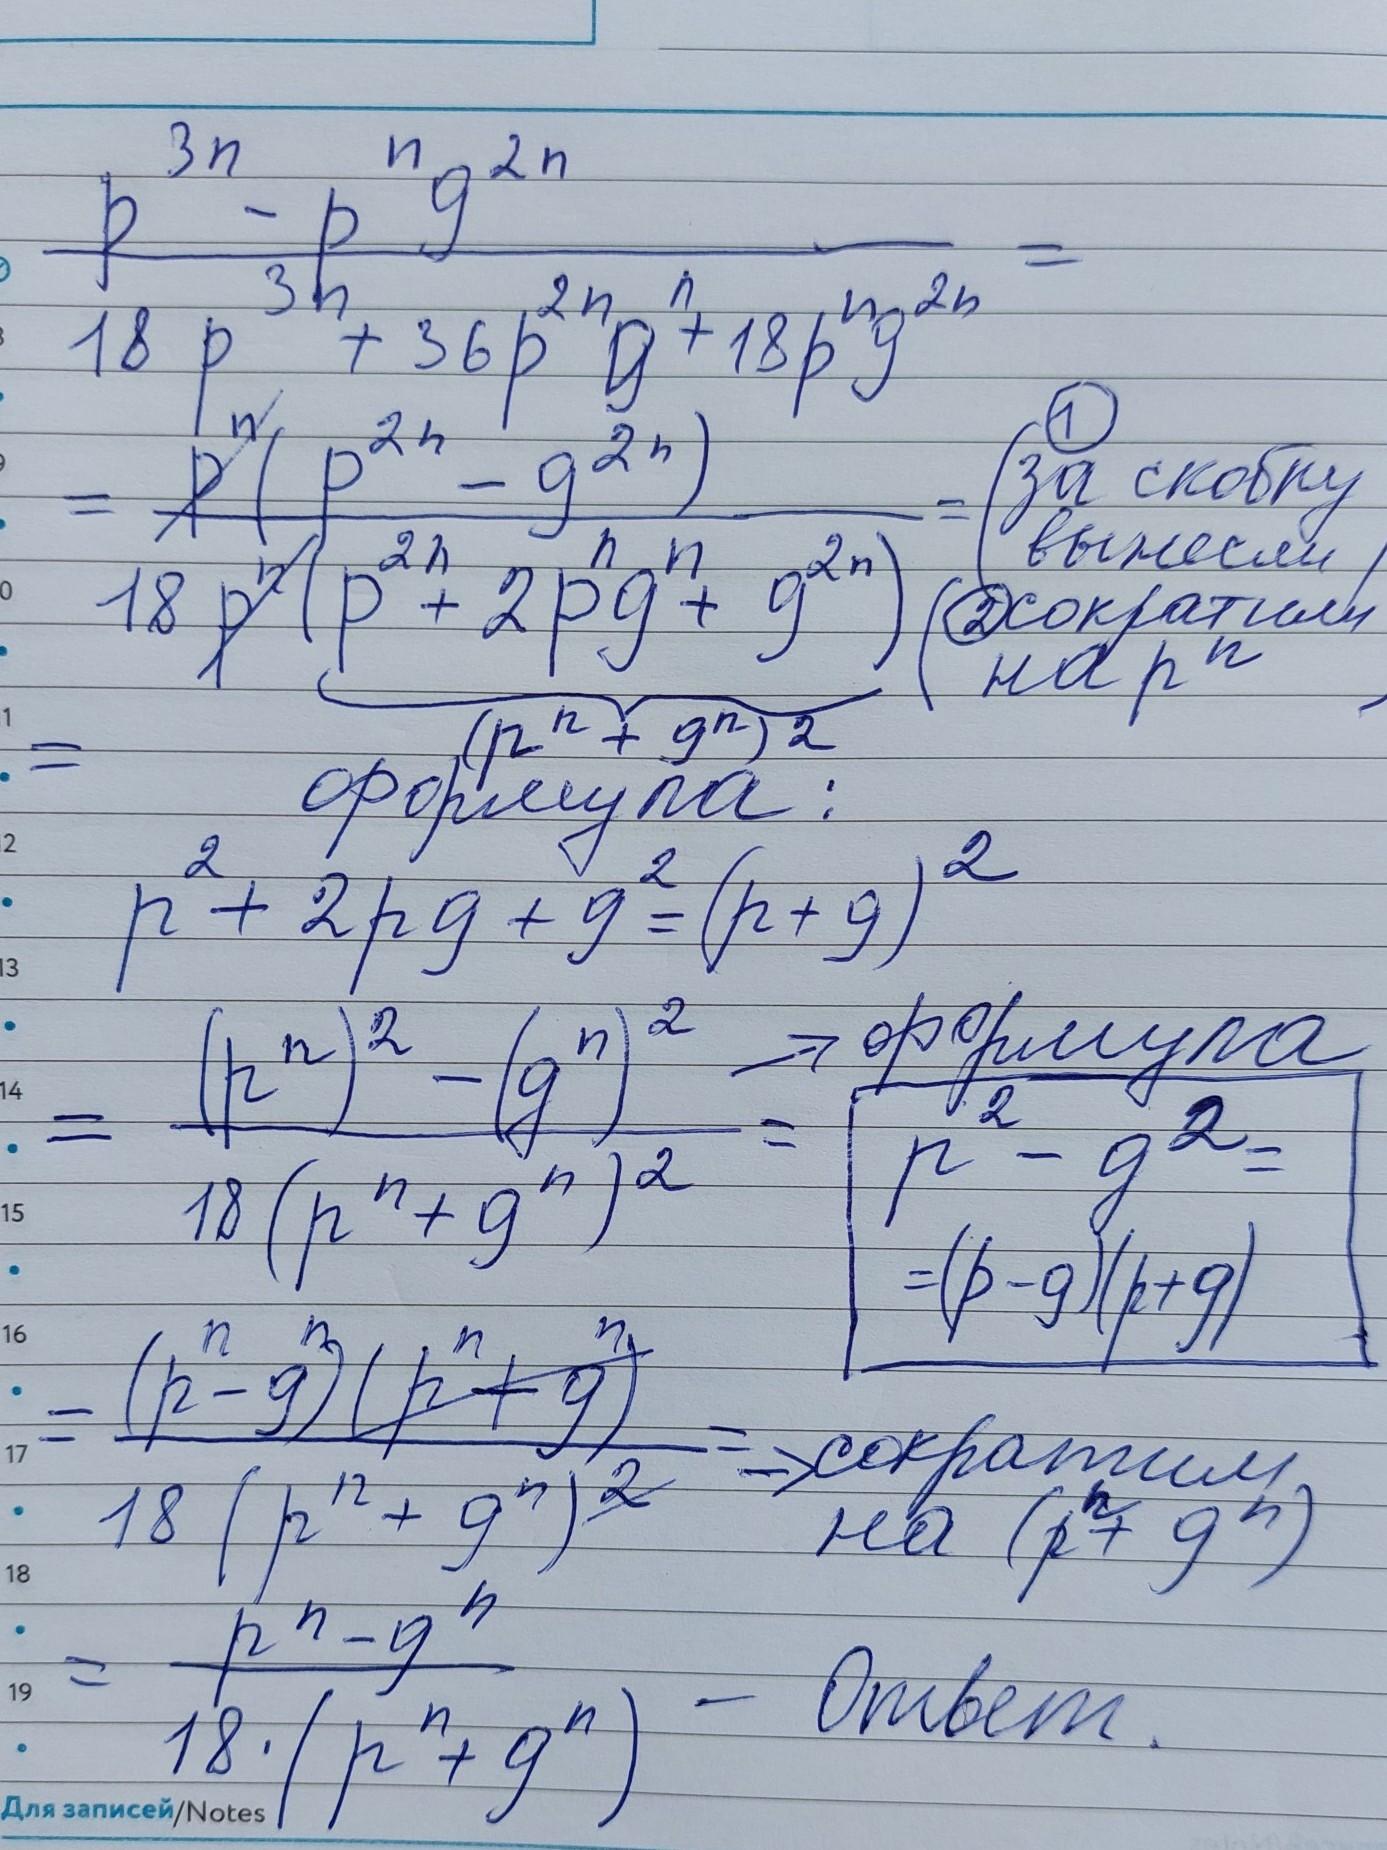 p^{3n} - p^n g^{2n}
=
18 p^{3n} + 36p^{2n} g^n + 18p^n g^{2n}
= p^n (p^{2n} - g^{2n}) = (① за скобку
вынесли)
18 p^n (p^{2n} + 2p^n g^n + g^{2n}) (② сократили
на p^n)
= (p^n + g^n)^2
формула:
p^2 + 2pg + g^2 = (p+g)^2
= (p^n)^2 - (g^n)^2 = → формула
18 (p^n + g^n)^2
p^2 - g^2 =
= (p-g)(p+g)
= (p^n - g^n)(p^n + g^n) = → сократим
18 (p^n + g^n)^2 на (p^n + g^n)
= p^n - g^n
18 · (p^n + g^n) - Ответ.
8
9
10
11
12
13
14
15
16
17
18
19
Для записей/Notes